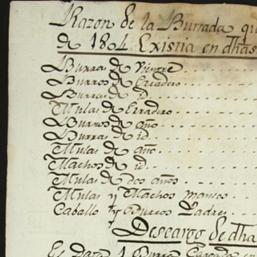 Razon de la Burrada qu
de 1804 Existia en dhas
Burras de Vientre
Burros de Erradero
Burras de id
Mulas de Erradero
Burros de año
Burras de id
Mulas de año
Machos de id
Mulas de dos años
Mulas y Machos mansos
Caballo y Burros Padres
Descargo de dha